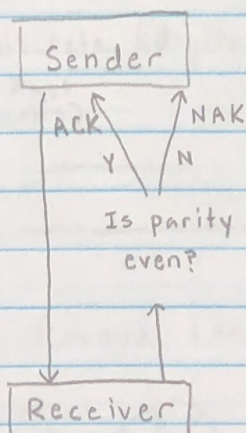 Sender
ACK
NAK
Y
N
Is parity
even?
Receiver